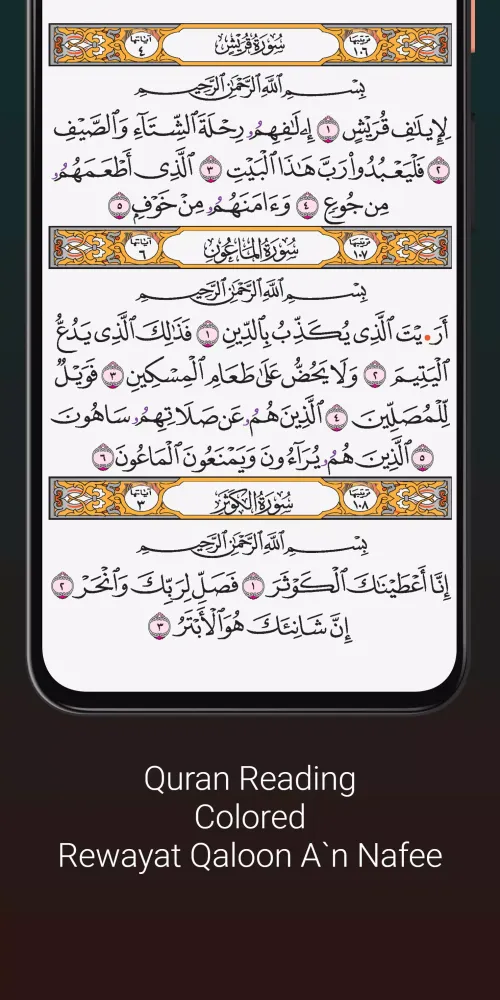 ترتيبها ١٠٦ سُورَةُ قُرَيْشٍ آياتها ٤
بِسْمِ اللَّهِ الرَّحْمَٰنِ الرَّحِيمِ
لِإِيلَٰفِ قُرَيْشٍ ١ إِۦلَٰفِهِمُۥ رِحْلَةَ ٱلشِّتَآءِ وَٱلصَّيْفِ
٢ فَلْيَعْبُدُواْ رَبَّ هَٰذَا ٱلْبَيْتِ ٣ ٱلَّذِى أَطْعَمَهُمُۥ
مِن جُوعٍ ٤ وَءَامَنَهُمُۥ مِنْ خَوْفٍ ٥
ترتيبها ١٠٧ سُورَةُ المَاعُون آياتها ٦
بِسْمِ اللَّهِ الرَّحْمَٰنِ الرَّحِيمِ
أَرَ•يْتَ ٱلَّذِى يُكَذِّبُ بِٱلدِّينِ ١ فَذَٰلِكَ ٱلَّذِى يَدُعُّ
ٱلْيَتِيمَ ٢ وَلَا يَحُضُّ عَلَىٰ طَعَامِ ٱلْمِسْكِينِ ٣ فَوَيْلٌ
لِّلْمُصَلِّينَ ٤ ٱلَّذِينَ هُمُۥ عَن صَلَاتِهِمُۥ سَاهُونَ
٥ ٱلَّذِينَ هُمُۥ يُرَآءُونَ وَيَمْنَعُونَ ٱلْمَاعُونَ ٦
ترتيبها ١٠٨ سُورَةُ الكَوْثَر آياتها ٣
بِسْمِ اللَّهِ الرَّحْمَٰنِ الرَّحِيمِ
إِنَّا أَعْطَيْنَٰكَ ٱلْكَوْثَرَ ١ فَصَلِّ لِرَبِّكَ وَٱنْحَرْ ٢
إِنَّ شَانِئَكَ هُوَ ٱلْأَبْتَرُ ٣
Quran Reading
Colored
Rewayat Qaloon A`n Nafee